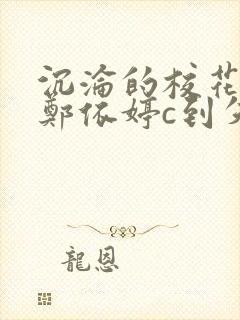 沉淪的校花
鄭依婷c到
龍恩